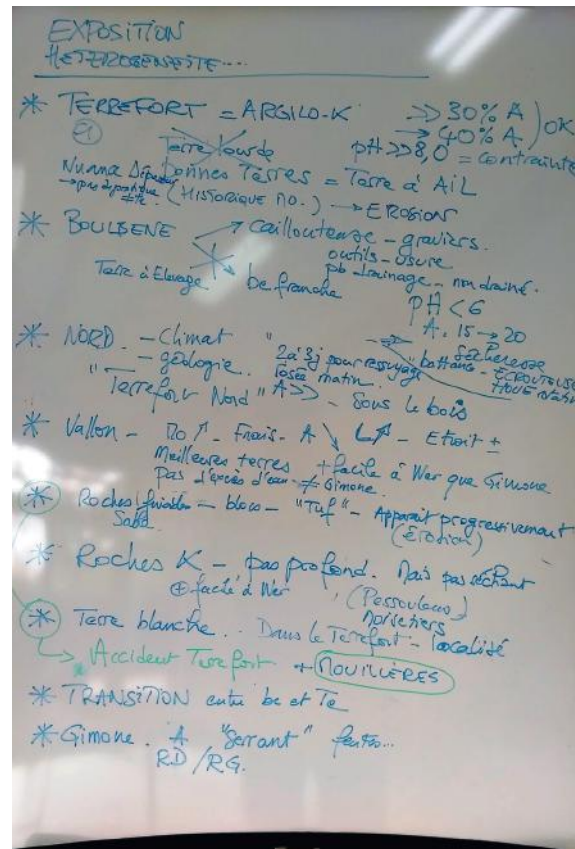 EXPOSITION
HETEROGENEITE....
* TERREFORT = ARGILO-K >> 30% A
→ 40% A ) OK
Terre lourde pH >> 8,0 = Contrainte
Bonnes Terres = Terre à AiL
(HISTORIQUE MO.) → EROSION
* BOULBENE → caillouteuse - graviers.
outils - usure
pb drainage - non drainé.
Terre à Elevage be franche
PH < 6
A. 15 → 20
* NORD. - Climat " Sécheresse
- géologie. 2 à 3j pour ressuyage " battance - ECROUTEUSE
rosée matin. HOUE
"Terrefort Nord" A >> - Sous le bois
* Vallon - MO ↗ - Frais - A ↘ L ↗ - Etroit ±
Meilleures terres + facile à W er que Gimone
pas d'excès d'eau ≠ Gimone.
* Roches - blocs - "Tuf" - Apparait progressivement
Sable (Erosion)
* Roches K - pas profond. Mais pas séchant
⊕ facile à W er (Pessoulens)
noisetiers
* Terre blanche .. Dans le Terrefort - localisé
→ Accident Terrefort + MOUILLÈRES
* TRANSITION entre be et Te
* Gimone. A "Serrant" fentes...
RD / RG.